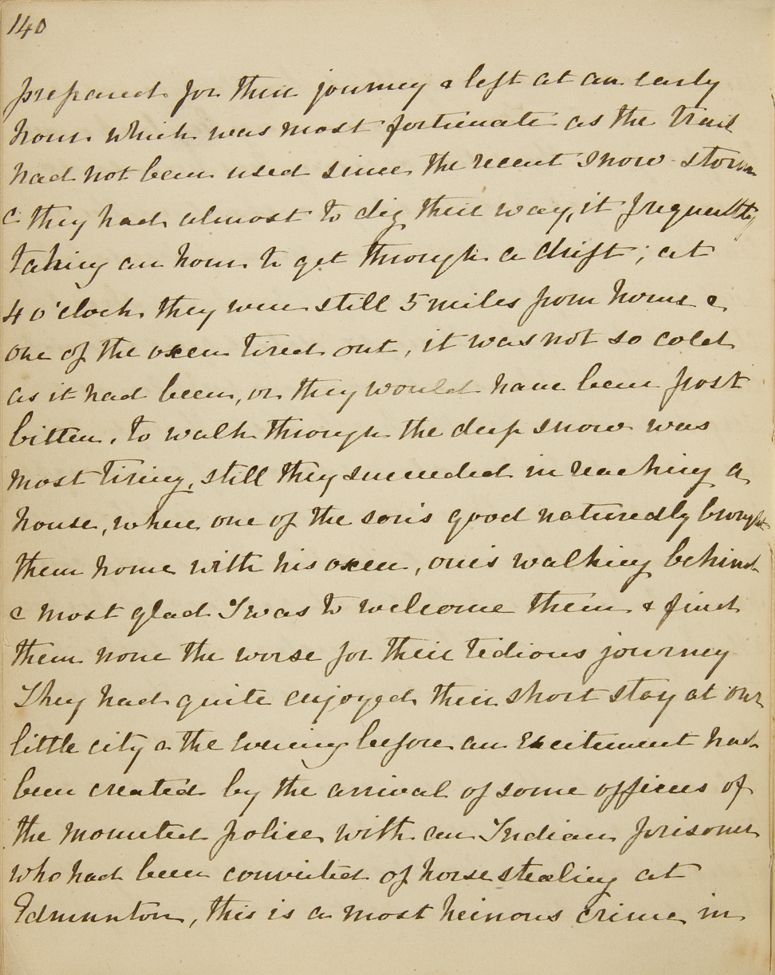 140
prepared for their journey & left at an early
hour which was most fortunate as the trail
had not been used since the recent snow-storm
& they had almost to dig their way, it frequently
taking an hour to get through a drift; at
4 o'clock they were still 5 miles from home &
one of the oxen tired out, it was not so cold
as it had been, or they would have been frost
bitten, to walk through the deep snow was
most tiring, still they succeeded in reaching a
house, where one of the son's good naturedly brought
them home with his oxen, our's walking behind
& most glad I was to welcome them & find
them none the worse for their tedious journey
They had quite enjoyed their short stay at our
little city & the evening before an excitement had
been created by the arrival of some officers of
the mounted police with an Indian prisoner
who had been convicted of horse stealing at
Edmunton, this is a most heinous crime in